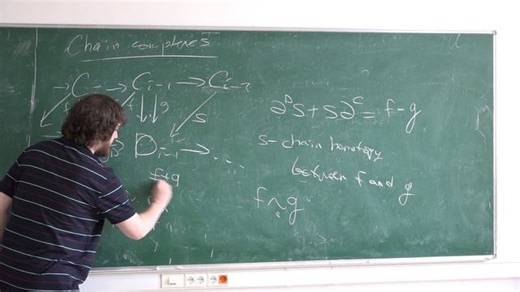 Chain complexes
→ C_i → C_{i-1} → C_{i-2}
g
s
D_{i-1} → ....
f g
∂^D s + s ∂^C = f - g
s - chain homotopy
between f and g
f ~ g